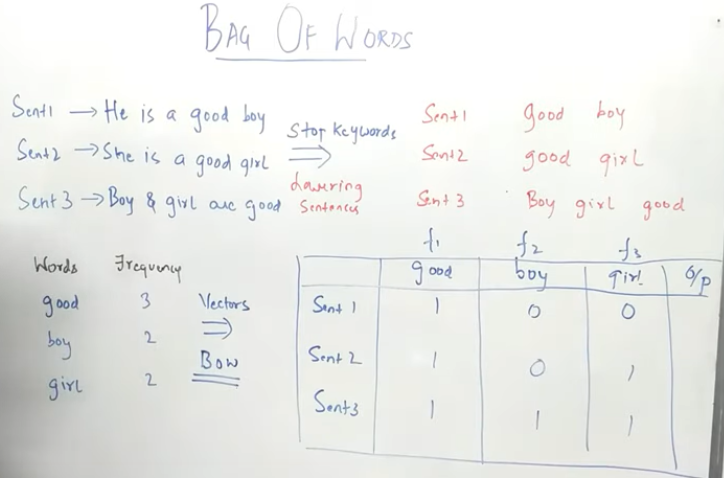 BAG OF WORDS
Sent1 → He is a good boy
Sent2 → She is a good girl
Sent3 → Boy & girl are good
Stop keywords
⇒
Lowering
Sentences
Sent1 good boy
Sent2 good girl
Sent3 Boy girl good
Words Frequency
good 3
boy 2
girl 2
Vectors
⇒
BOW
f1 f2 f3
good boy girl O/P
Sent 1 1 0 0
Sent 2 1 0 1
Sent3 1 1 1